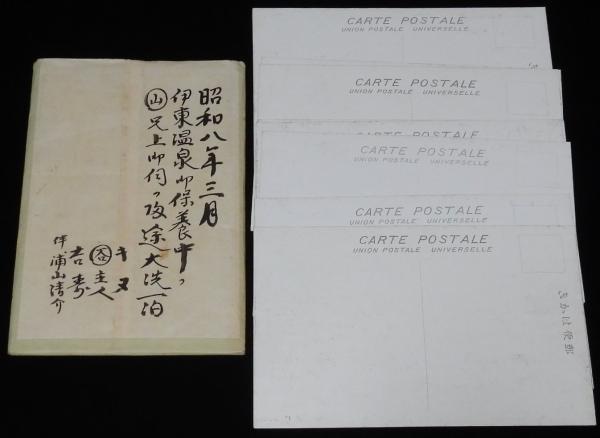 昭和八年三月
伊東温泉御保養中ノ
㊤兄上御伺ノ帰途大洗一泊
キヌ
主人
吉寿
伴 浦山清介
CARTE POSTALE
UNION POSTALE UNIVERSELLE
CARTE POSTALE
UNION POSTALE UNIVERSELLE
CARTE POSTALE
UNION POSTALE UNIVERSELLE
CARTE POSTALE
UNION POSTALE UNIVERSELLE
CARTE POSTALE
UNION POSTALE UNIVERSELLE
きかは便郵